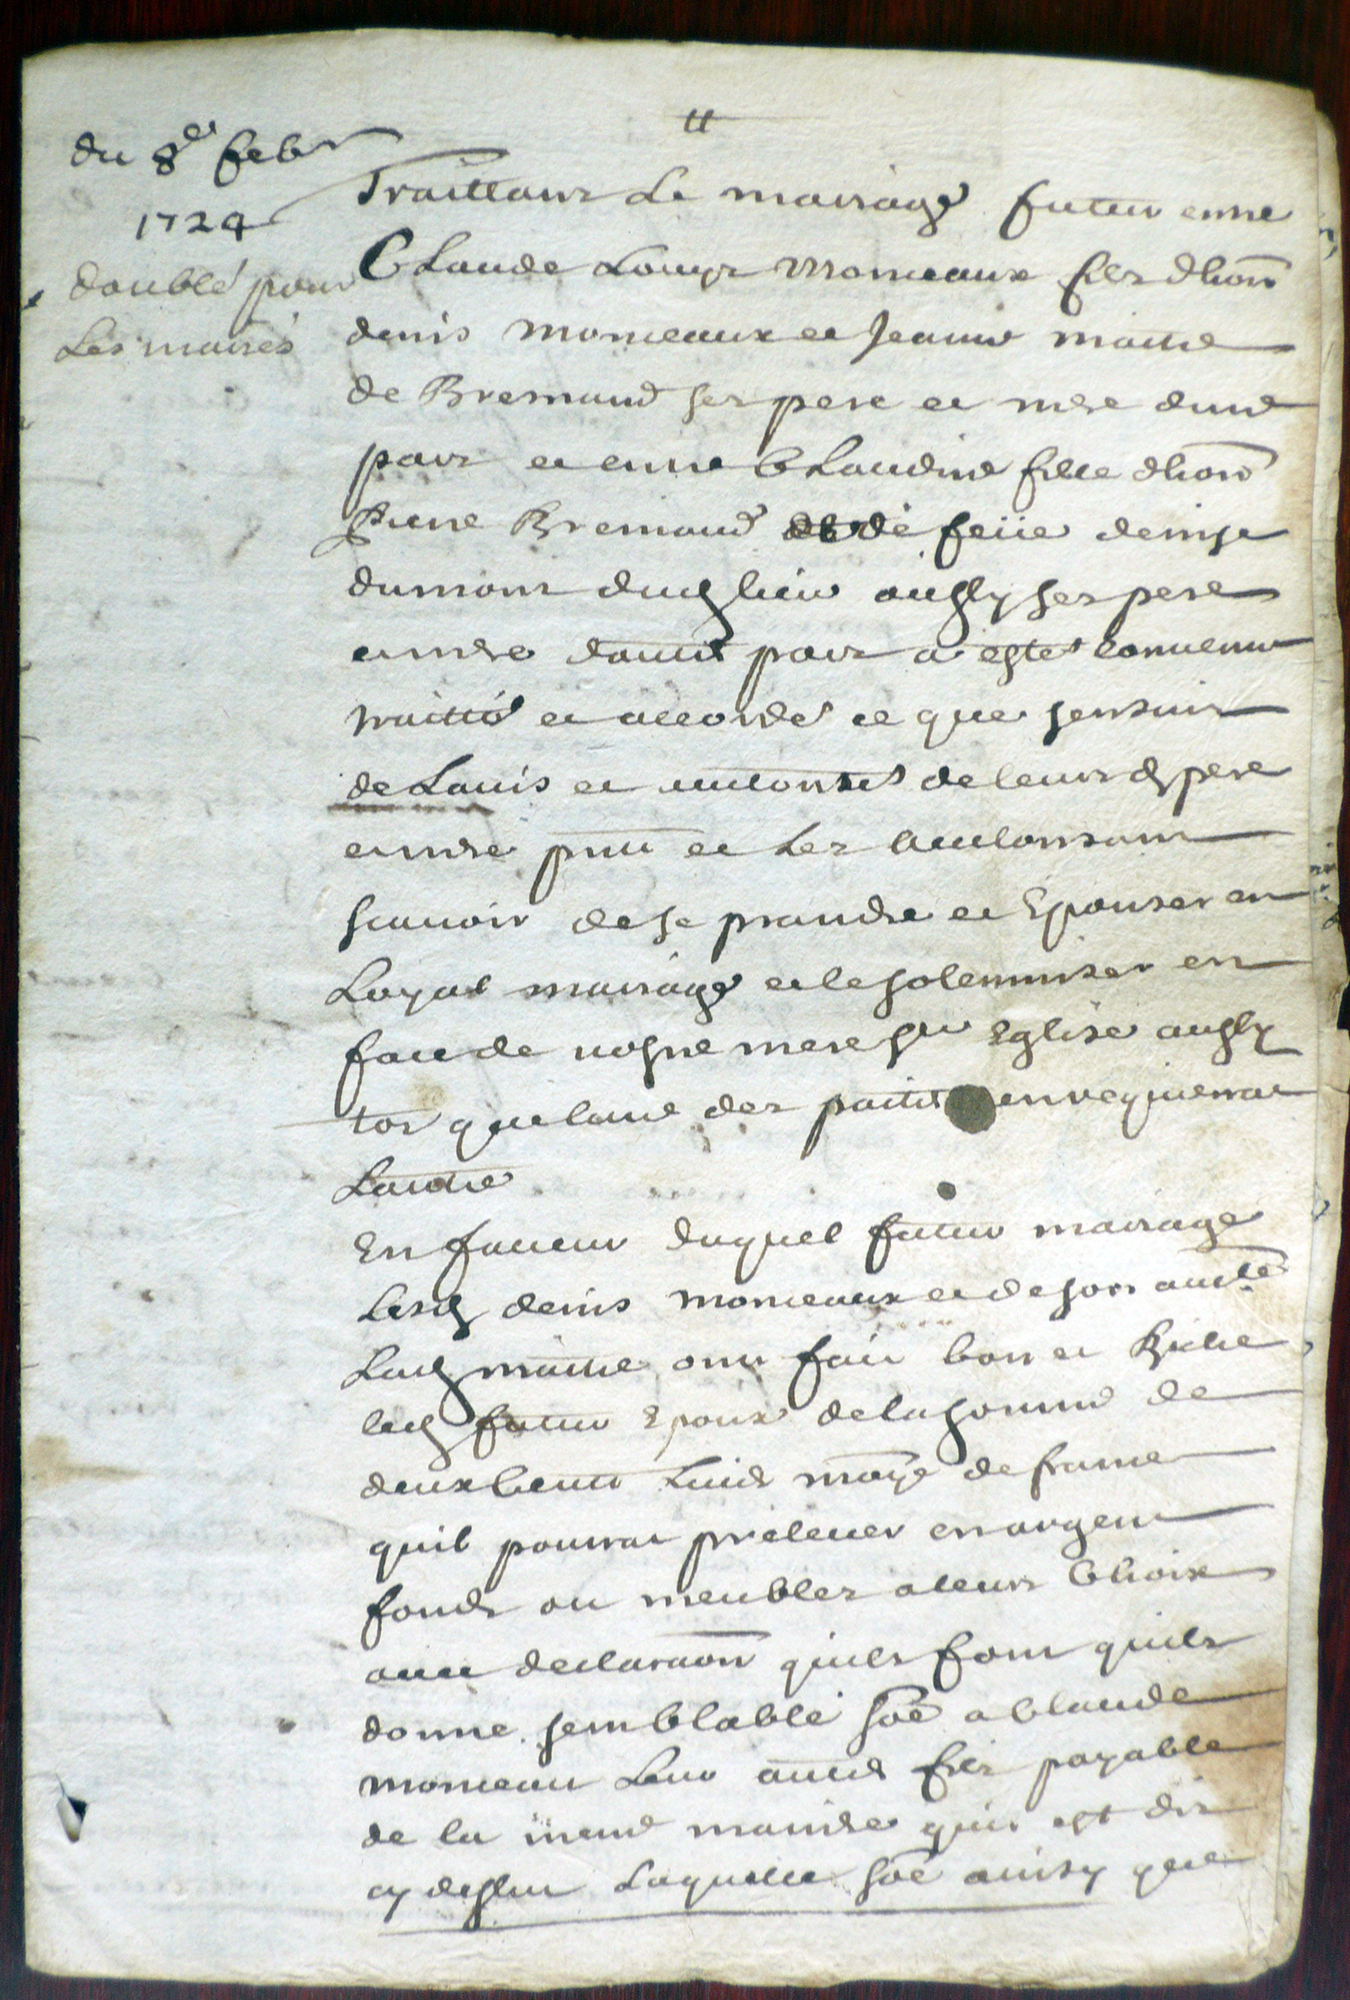 du 8e febr
1724
doublé pour
Les mariés
Traittant Le mariage futur entre
Claude Louys Monneaux fils dhon
denis Monneaux et Jeanne maitre
de Bremand ses pere et mere dune
part et entre Claudine fille dhon
Pierre Bremand de feüe denise
dumont dud lieu aussy ses pere
et mere dautre part a esté convenu
traitté et accordé ce que sensuit
de Lavis et authorité de leursd pere
et mere pnts et Les authorisant
scavoir de se prandre et Epouser en
Loyal mariage et le solemniser en
face de nostre mere ste Eglise aussy
tot que lune des parties en requierrat
Lautre
En faveur duquel futur mariage
Lesd denis monneaux et de son authte
Lad maitre ont fait bon et Riche
led futur Epoux de la somme de
deux Cent Livres monoye de france
quil pourrat prelever en argent
fonds ou meubles a leurs Choix
avec declaraon quils font quils
donne semblable soe a Claude
monneau Leur autre fils payable
de la meme maniere quil est dit
cy dessus Laquelle soe ainsy que